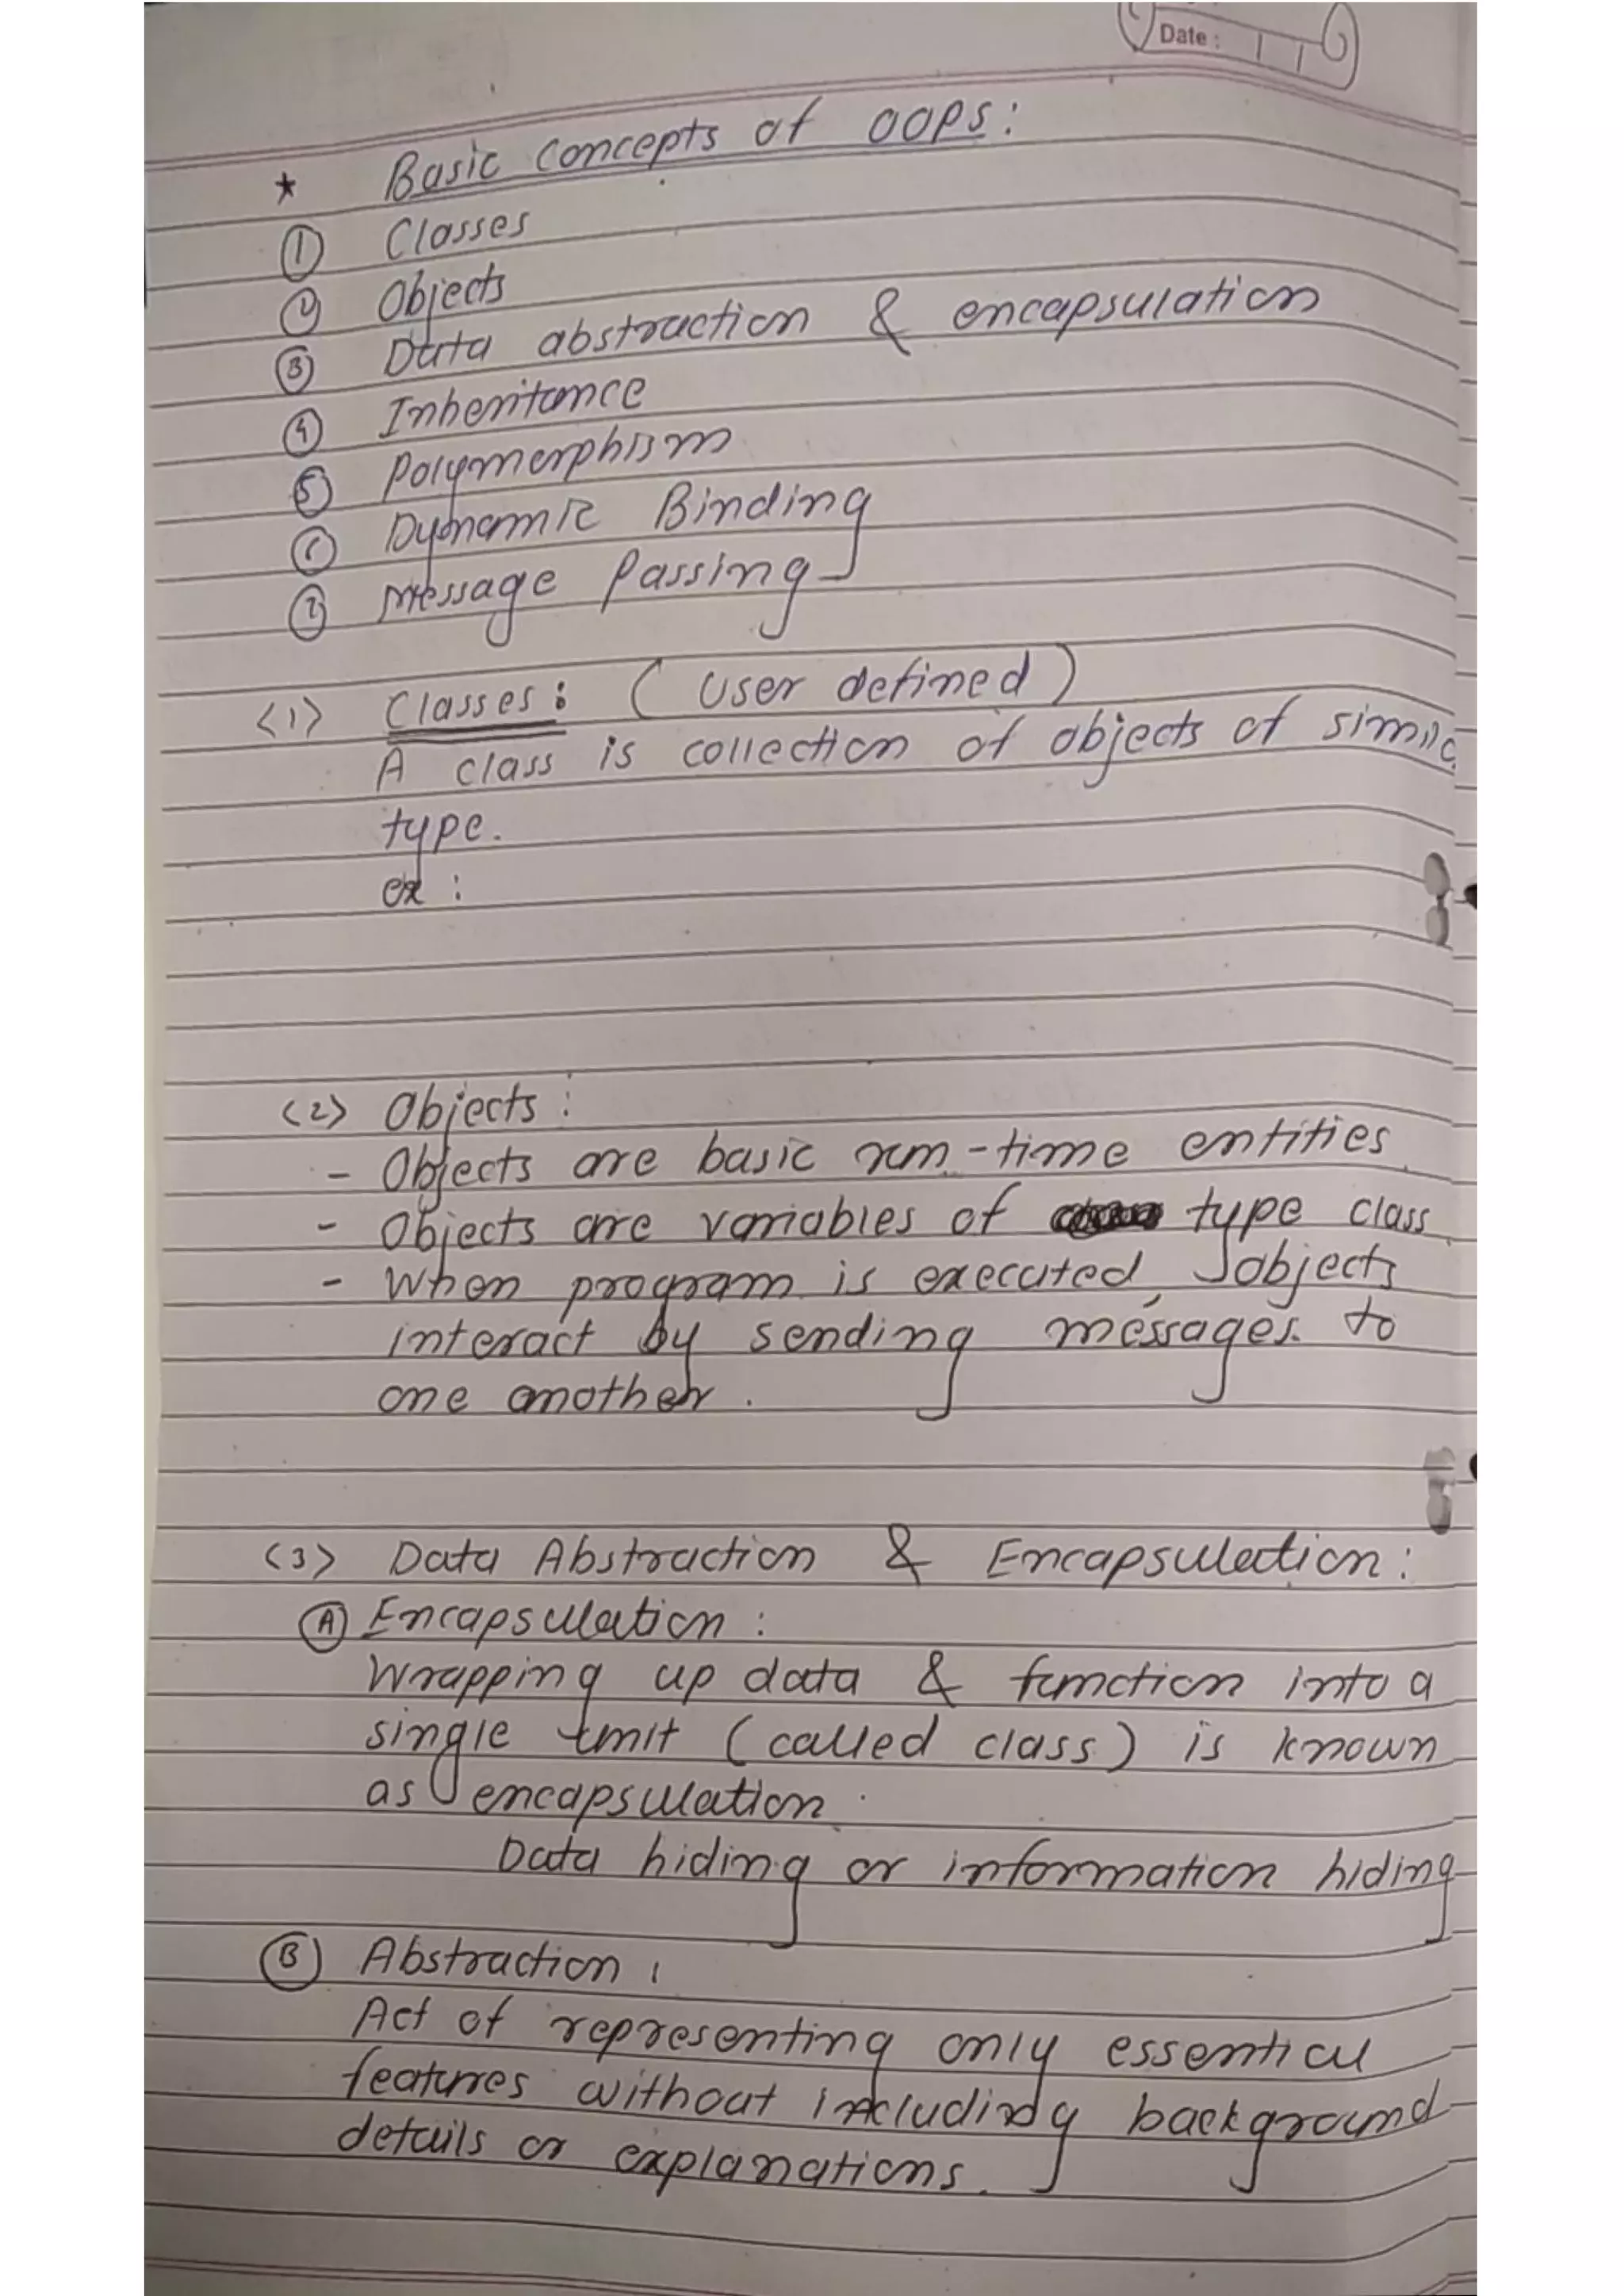 Date :
★ Basic Concepts of OOPS :
① Classes
② Objects
③ Data abstraction & encapsulation
④ Inheritance
⑤ Polymorphism
⑥ Dynamic Binding
⑦ Message Passing
<1> Classes : ( User defined )
A class is collection of objects of simila
type.
ex :
<2> Objects :
- Objects are basic run-time entities
- Objects are variables of type class
- When program is executed, objects
interact by sending messages to
one another.
<3> Data Abstraction & Encapsulation :
Ⓐ Encapsulation :
Wrapping up data & function into a
single unit ( called class ) is known
as encapsulation.
Data hiding or information hiding
Ⓑ Abstraction :
Act of representing only essential
features without including background
details or explanations.